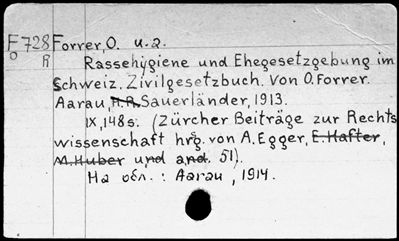 F 728 Forrer, O. u.a.
O R Rassehygiene und Ehegesetzgebung im
Schweiz. Zivilgesetzbuch. Von O. Forrer.
Aarau, H.R. Sauerländer, 1913.
IX, 148 s. (Zürcher Beiträge zur Rechts
wissenschaft hrsg. von A. Egger, E. Hafter,
M. Huber und and. 51).
На обл.: Aarau, 1914.